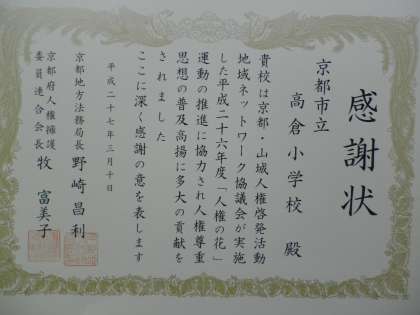 感謝状
京都市立
高倉小学校 殿
貴校は京都・山城人権啓発活動
地域ネットワーク協議会が実施
した平成二十六年度「人権の花」
運動の推進に協力され人権尊重
思想の普及高揚に多大の貢献を
されました
ここに深く感謝の意を表します
平成二十七年三月十日
京都地方法務局長 野崎昌利
京都府人権擁護
委員連合会長 牧富美子